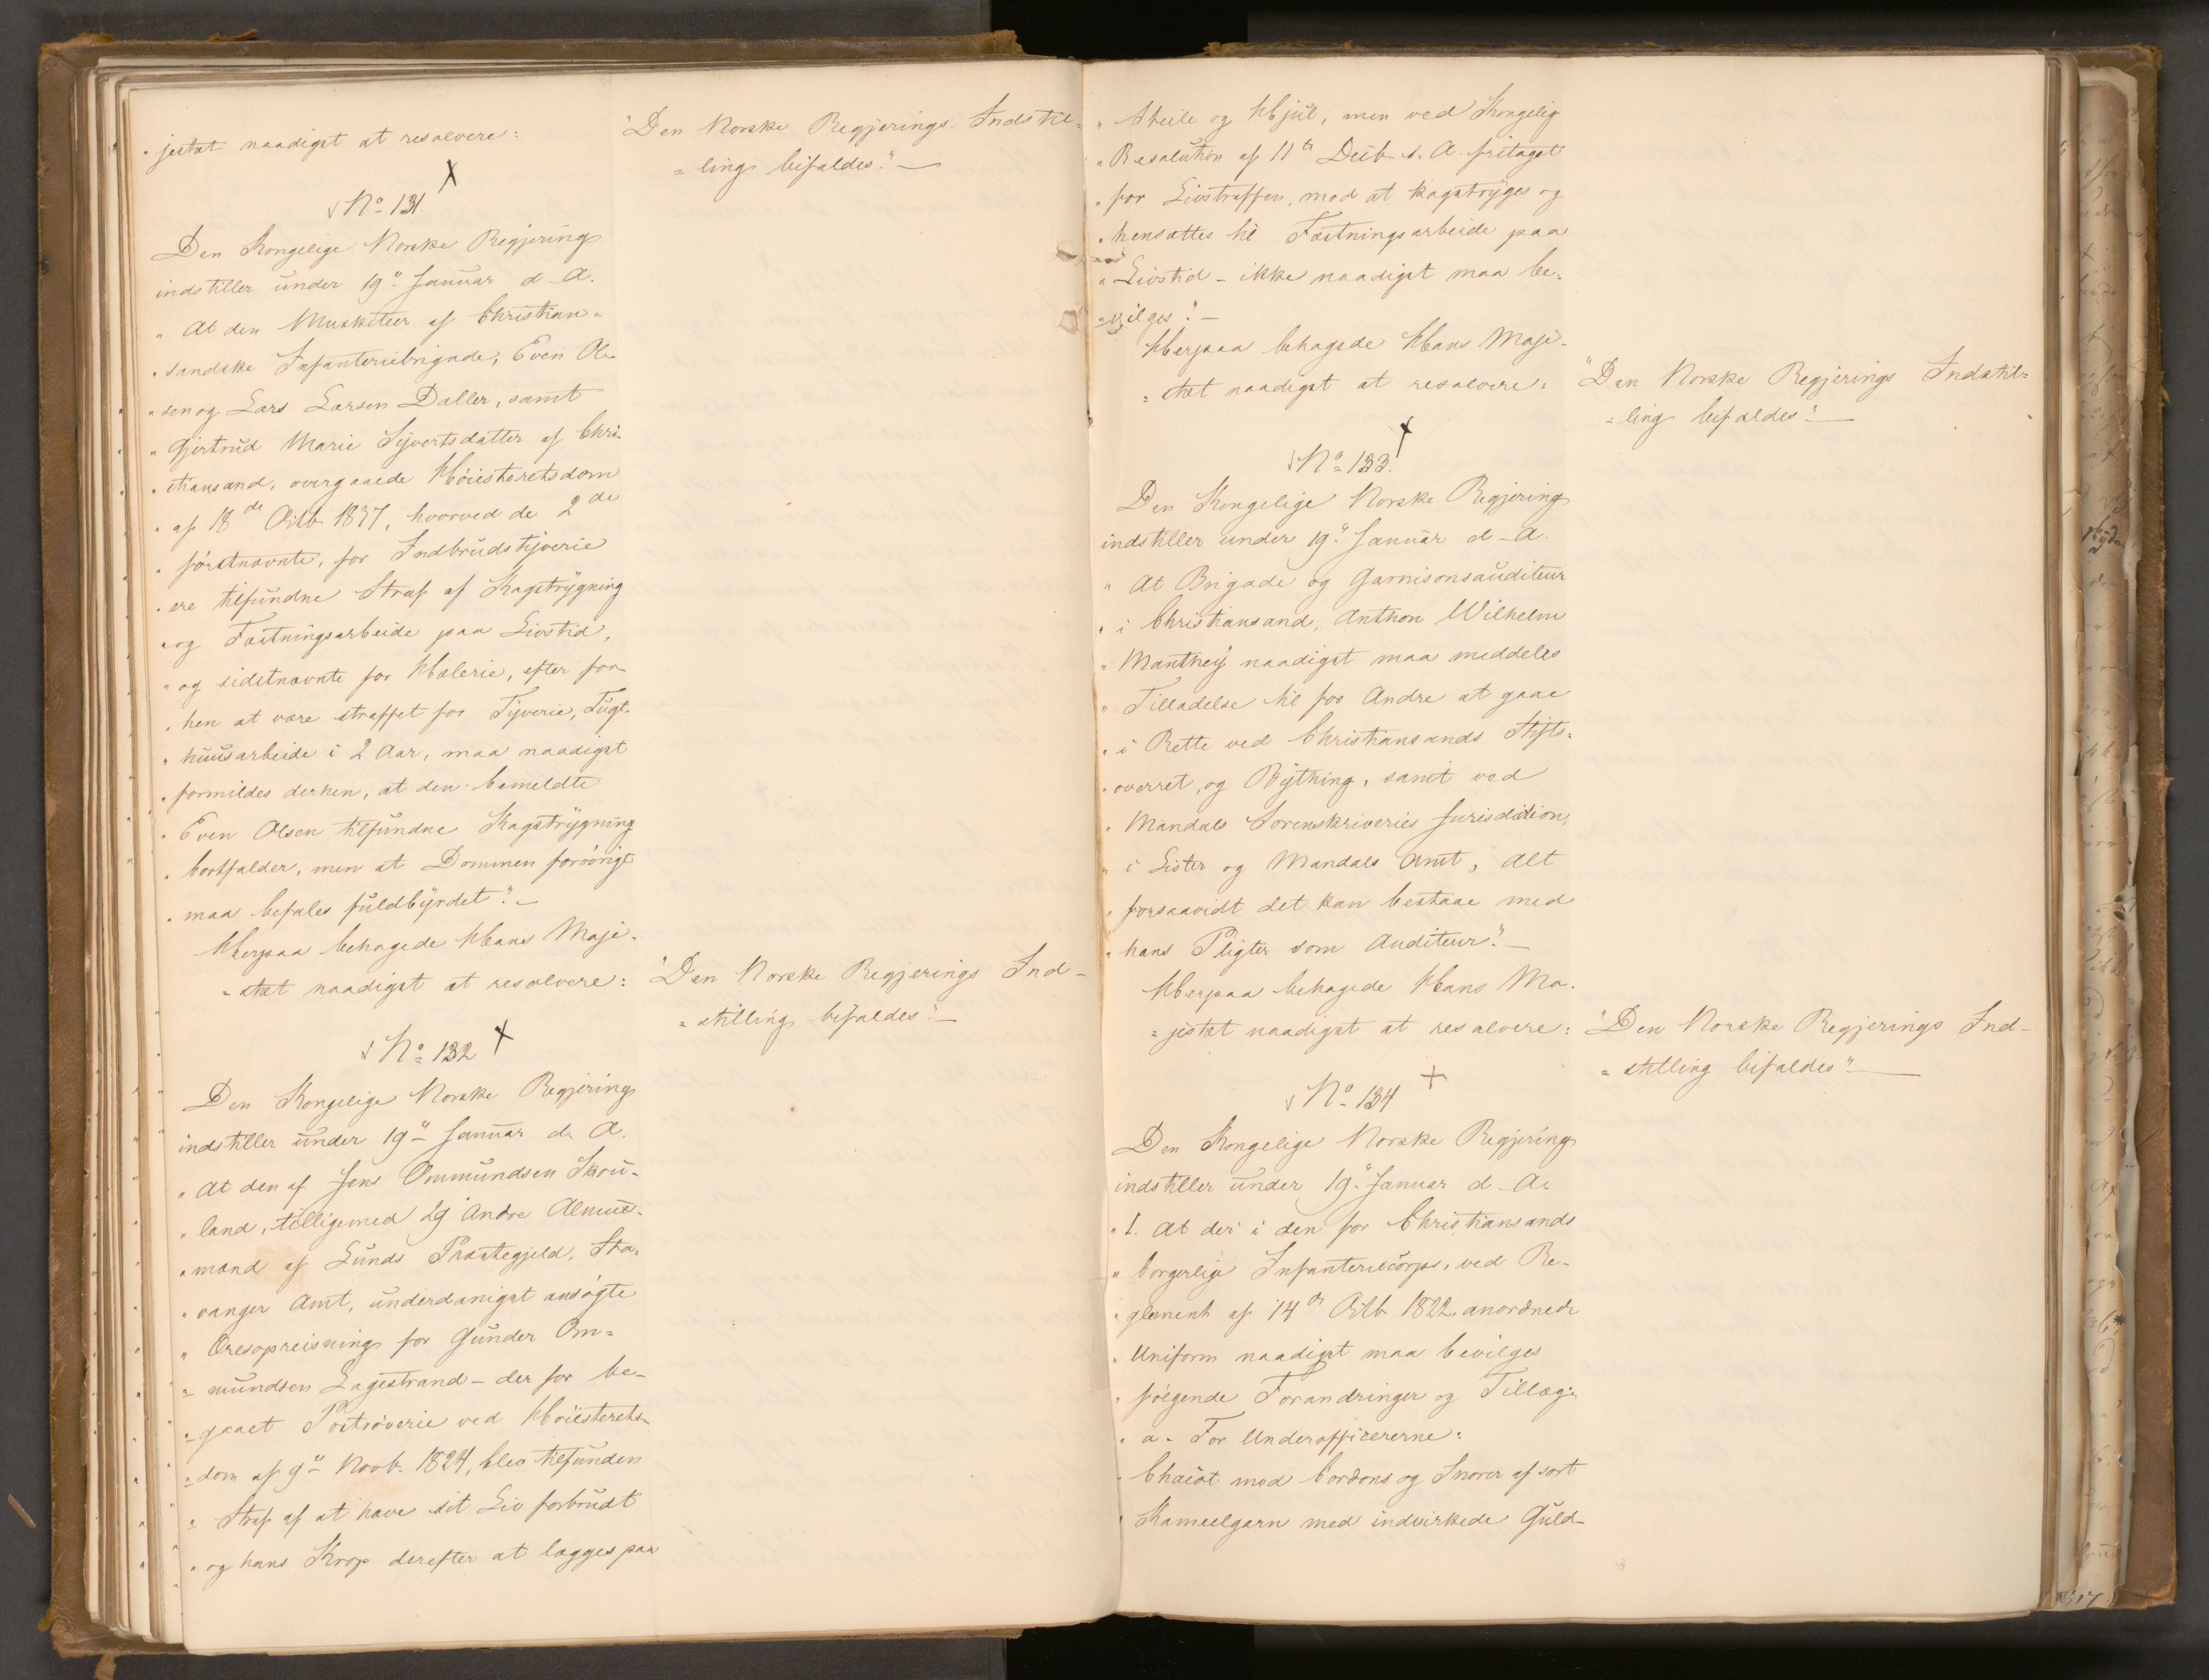 „jestæt naadigst at resolvere:
"Den Norske Regjerings Indstil=
=ling bifaldes."—
No 131.
Den Kongelige Norske Regjering
indstiller under 19de Januar d. A.
„At den Musketeer af Christian=
„sandske Infanteriebrigade, Even Ol=
„sen og Lars Larsen Daller, samt
„Gjertrud Marie Syvertsdatter af Chri-
„stiansand, overgaaede Høiesteretsdom
„af 18de Octb. 1837, hvorved de 2de
„førstnævnte, for Indbrudstyverie
„ere tilfundne Straf af Kagstrygning
„og Fæstningsarbeide paa Livstid,
„og sidstnævnte for Hælerie, efter for-
„hen at være straffet for Tyverie, Tugt-
„huusarbeide i 2 Aar, maa naadigst
„formildes derhen, at den bemeldte
„Even Olsen tilfundne Kagstrygning
„bortfalder, men at Dommen forøvrigt
„maa befales fuldbyrdet."—
Herpaa behagede Hans Maje-
-stæt naadigst at resolvere:
"Den Norske Regjerings Ind-
=stilling bifaldes."—
No 132
Den Kongelige Norske Regjering
indstiller under 19de Januar d. A.
„At den af Jens Ommundsen Skru-
„land, tilligemed 29 Andre Almue-
„mænd af Lunds Præstegjeld, Sta=
„vanger Amt, underdanigst ansøgte
„Æresopreisning for Gunder Om=
„mundsen Eagestrand – der for be-
„gaaet Postrøverie ved Høiesterets-
„dom af 9de Novb. 1824, blev tilfunden
„Straf af at have sit Liv forbrudt
„og hans Krop derefter at lægges paa
„Steile og Hjul, men ved Kongelig
„Resolution af 11te Decb. s. A. fritaget
„for Livstraffen, mod at kagstryges og
„hensættes til Fæstningsarbeide paa
„Livstid – ikke naadigst maa be=
„vilges."—
Herpaa behagede Hans Maje-
=stæt naadigst at resolvere:
"Den Norske Regjerings Indstil=
=ling bifaldes"—
No 133.
Den Kongelige Norske Regjering
indstiller under 19de Januar d. A.
„At Brigade og Garnisonsauditeur
„i Christiansand, Anthon Wilhelm
„Manthey naadigst maa meddeles
„Tilladelse til for Andre at gaae
„i Rette ved Christiansands Stifts=
„overret, og Bything, samt ved
„Mandals Sorenskriveries Jurisdiction,
„i Lister og Mandals Amt, alt
„forsaavidt det kan bestaae med
„hans Pligter som Auditeur."—
Herpaa behagede Hans Ma-
=jestæt naadigst at resolvere:
"Den Norske Regjerings Ind-
=stilling bifaldes"—
No 134
Den Kongelige Norske Regjering
indstiller under 19de Januar d. A.
„1. At der i den for Christiansands
„borgerlige Infanteriecorps, ved Re-
„glement af 14de Octb. 1822 anordnede
„Uniform naadigst maa bevilges
„følgende Forandringer og Tillæg:
„a. For Underofficererne:
„Chaiot med Cordons og Snorer af sort
„Kameelgarn med indvirkede Guld-